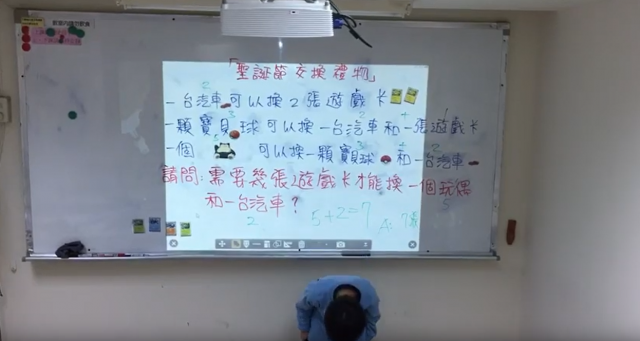 「聖誕節交換禮物」
2
一台汽車可以換2張遊戲卡
3 2 + 1
一顆寶貝球可以換一台汽車和一張遊戲卡
5 3 + 2
一個 可以換一顆寶貝球和一台汽車
請問:需要幾張遊戲卡才能換一個玩偶
5
和一台汽車?
2
5+2=7
A: 7張